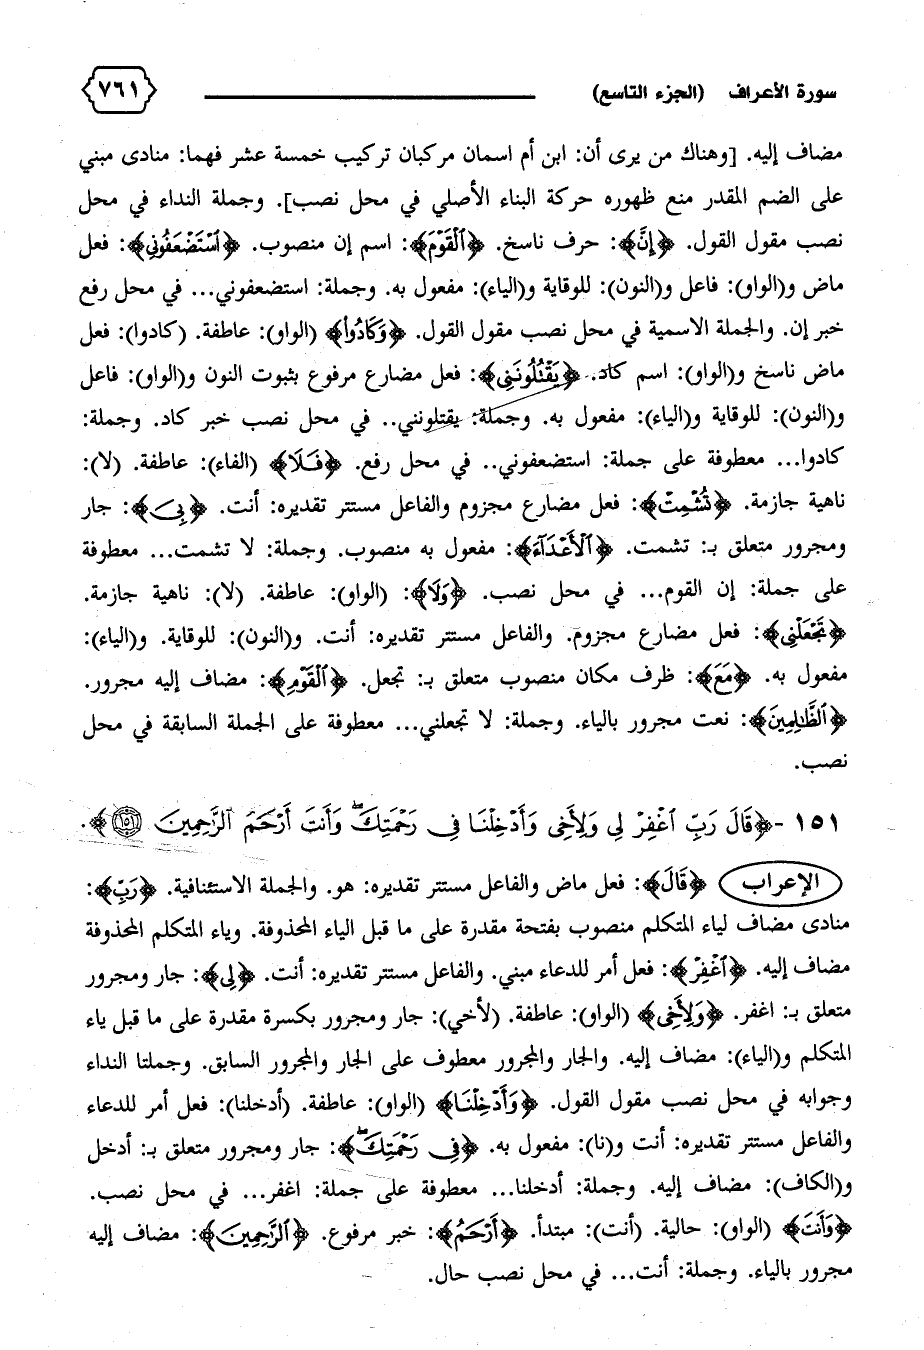 سورة الأعراف (الجزء التاسع) ٧٦١
مضاف إليه. [وهناك من يرى أن: ابن أم اسمان مركبان تركيب خمسة عشر فهما: منادى مبني
على الضم المقدر منع ظهوره حركة البناء الأصلي في محل نصب]. وجملة النداء في محل
نصب مقول القول. ﴿إِنَّ﴾: حرف ناسخ. ﴿ٱلْقَوْمَ﴾: اسم إن منصوب. ﴿ٱسْتَضْعَفُونِي﴾: فعل
ماض و(الواو): فاعل و(النون): للوقاية و(الياء): مفعول به. وجملة: استضعفوني... في محل رفع
خبر إن. والجملة الاسمية في محل نصب مقول القول. ﴿وَكَادُوا۟﴾ (الواو): عاطفة. (كادوا): فعل
ماض ناسخ و(الواو): اسم كاد. ﴿يَقْتُلُونَنِي﴾: فعل مضارع مرفوع بثبوت النون و(الواو): فاعل
و(النون): للوقاية و(الياء): مفعول به. وجملة: يقتلونني.. في محل نصب خبر كاد. وجملة:
كادوا... معطوفة على جملة: استضعفوني.. في محل رفع. ﴿فَلَا﴾ (الفاء): عاطفة. (لا):
ناهية جازمة. ﴿تُشْمِتْ﴾: فعل مضارع مجزوم والفاعل مستتر تقديره: أنت. ﴿بِىَ﴾: جار
ومجرور متعلق بـ: تشمت. ﴿ٱلْأَعْدَآءَ﴾: مفعول به منصوب. وجملة: لا تشمت... معطوفة
على جملة: إن القوم... في محل نصب. ﴿وَلَا﴾: (الواو): عاطفة. (لا): ناهية جازمة.
﴿تَجْعَلْنِي﴾: فعل مضارع مجزوم. والفاعل مستتر تقديره: أنت. و(النون): للوقاية. و(الياء):
مفعول به. ﴿مَعَ﴾: ظرف مكان منصوب متعلق بـ: تجعل. ﴿ٱلْقَوْمِ﴾: مضاف إليه مجرور.
﴿ٱلظَّٰلِمِينَ﴾: نعت مجرور بالياء. وجملة: لا تجعلني... معطوفة على الجملة السابقة في محل
نصب.
١٥١ - ﴿قَالَ رَبِّ ٱغْفِرْ لِى وَلِأَخِى وَأَدْخِلْنَا فِى رَحْمَتِكَ ۖ وَأَنتَ أَرْحَمُ ٱلرَّٰحِمِينَ ١٥١﴾.
الإعراب ﴿قَالَ﴾: فعل ماض والفاعل مستتر تقديره: هو. والجملة الاستئنافية. ﴿رَبِّ﴾:
منادى مضاف لياء المتكلم منصوب بفتحة مقدرة على ما قبل الياء المحذوفة. وياء المتكلم المحذوفة
مضاف إليه. ﴿ٱغْفِرْ﴾: فعل أمر للدعاء مبني. والفاعل مستتر تقديره: أنت. ﴿لِى﴾: جار ومجرور
متعلق بـ: اغفر. ﴿وَلِأَخِى﴾ (الواو): عاطفة. (لأخي): جار ومجرور بكسرة مقدرة على ما قبل ياء
المتكلم و(الياء): مضاف إليه. والجار والمجرور معطوف على الجار والمجرور السابق. وجملتا النداء
وجوابه في محل نصب مقول القول. ﴿وَأَدْخِلْنَا﴾ (الواو): عاطفة. (أدخلنا): فعل أمر للدعاء
والفاعل مستتر تقديره: أنت و(نا): مفعول به. ﴿فِى رَحْمَتِكَ ۖ﴾: جار ومجرور متعلق بـ: أدخل
و(الكاف): مضاف إليه. وجملة: أدخلنا... معطوفة على جملة: اغفر... في محل نصب.
﴿وَأَنتَ﴾ (الواو): حالية. (أنت): مبتدأ. ﴿أَرْحَمُ﴾: خبر مرفوع. ﴿ٱلرَّٰحِمِينَ﴾: مضاف إليه
مجرور بالياء. وجملة: أنت... في محل نصب حال.